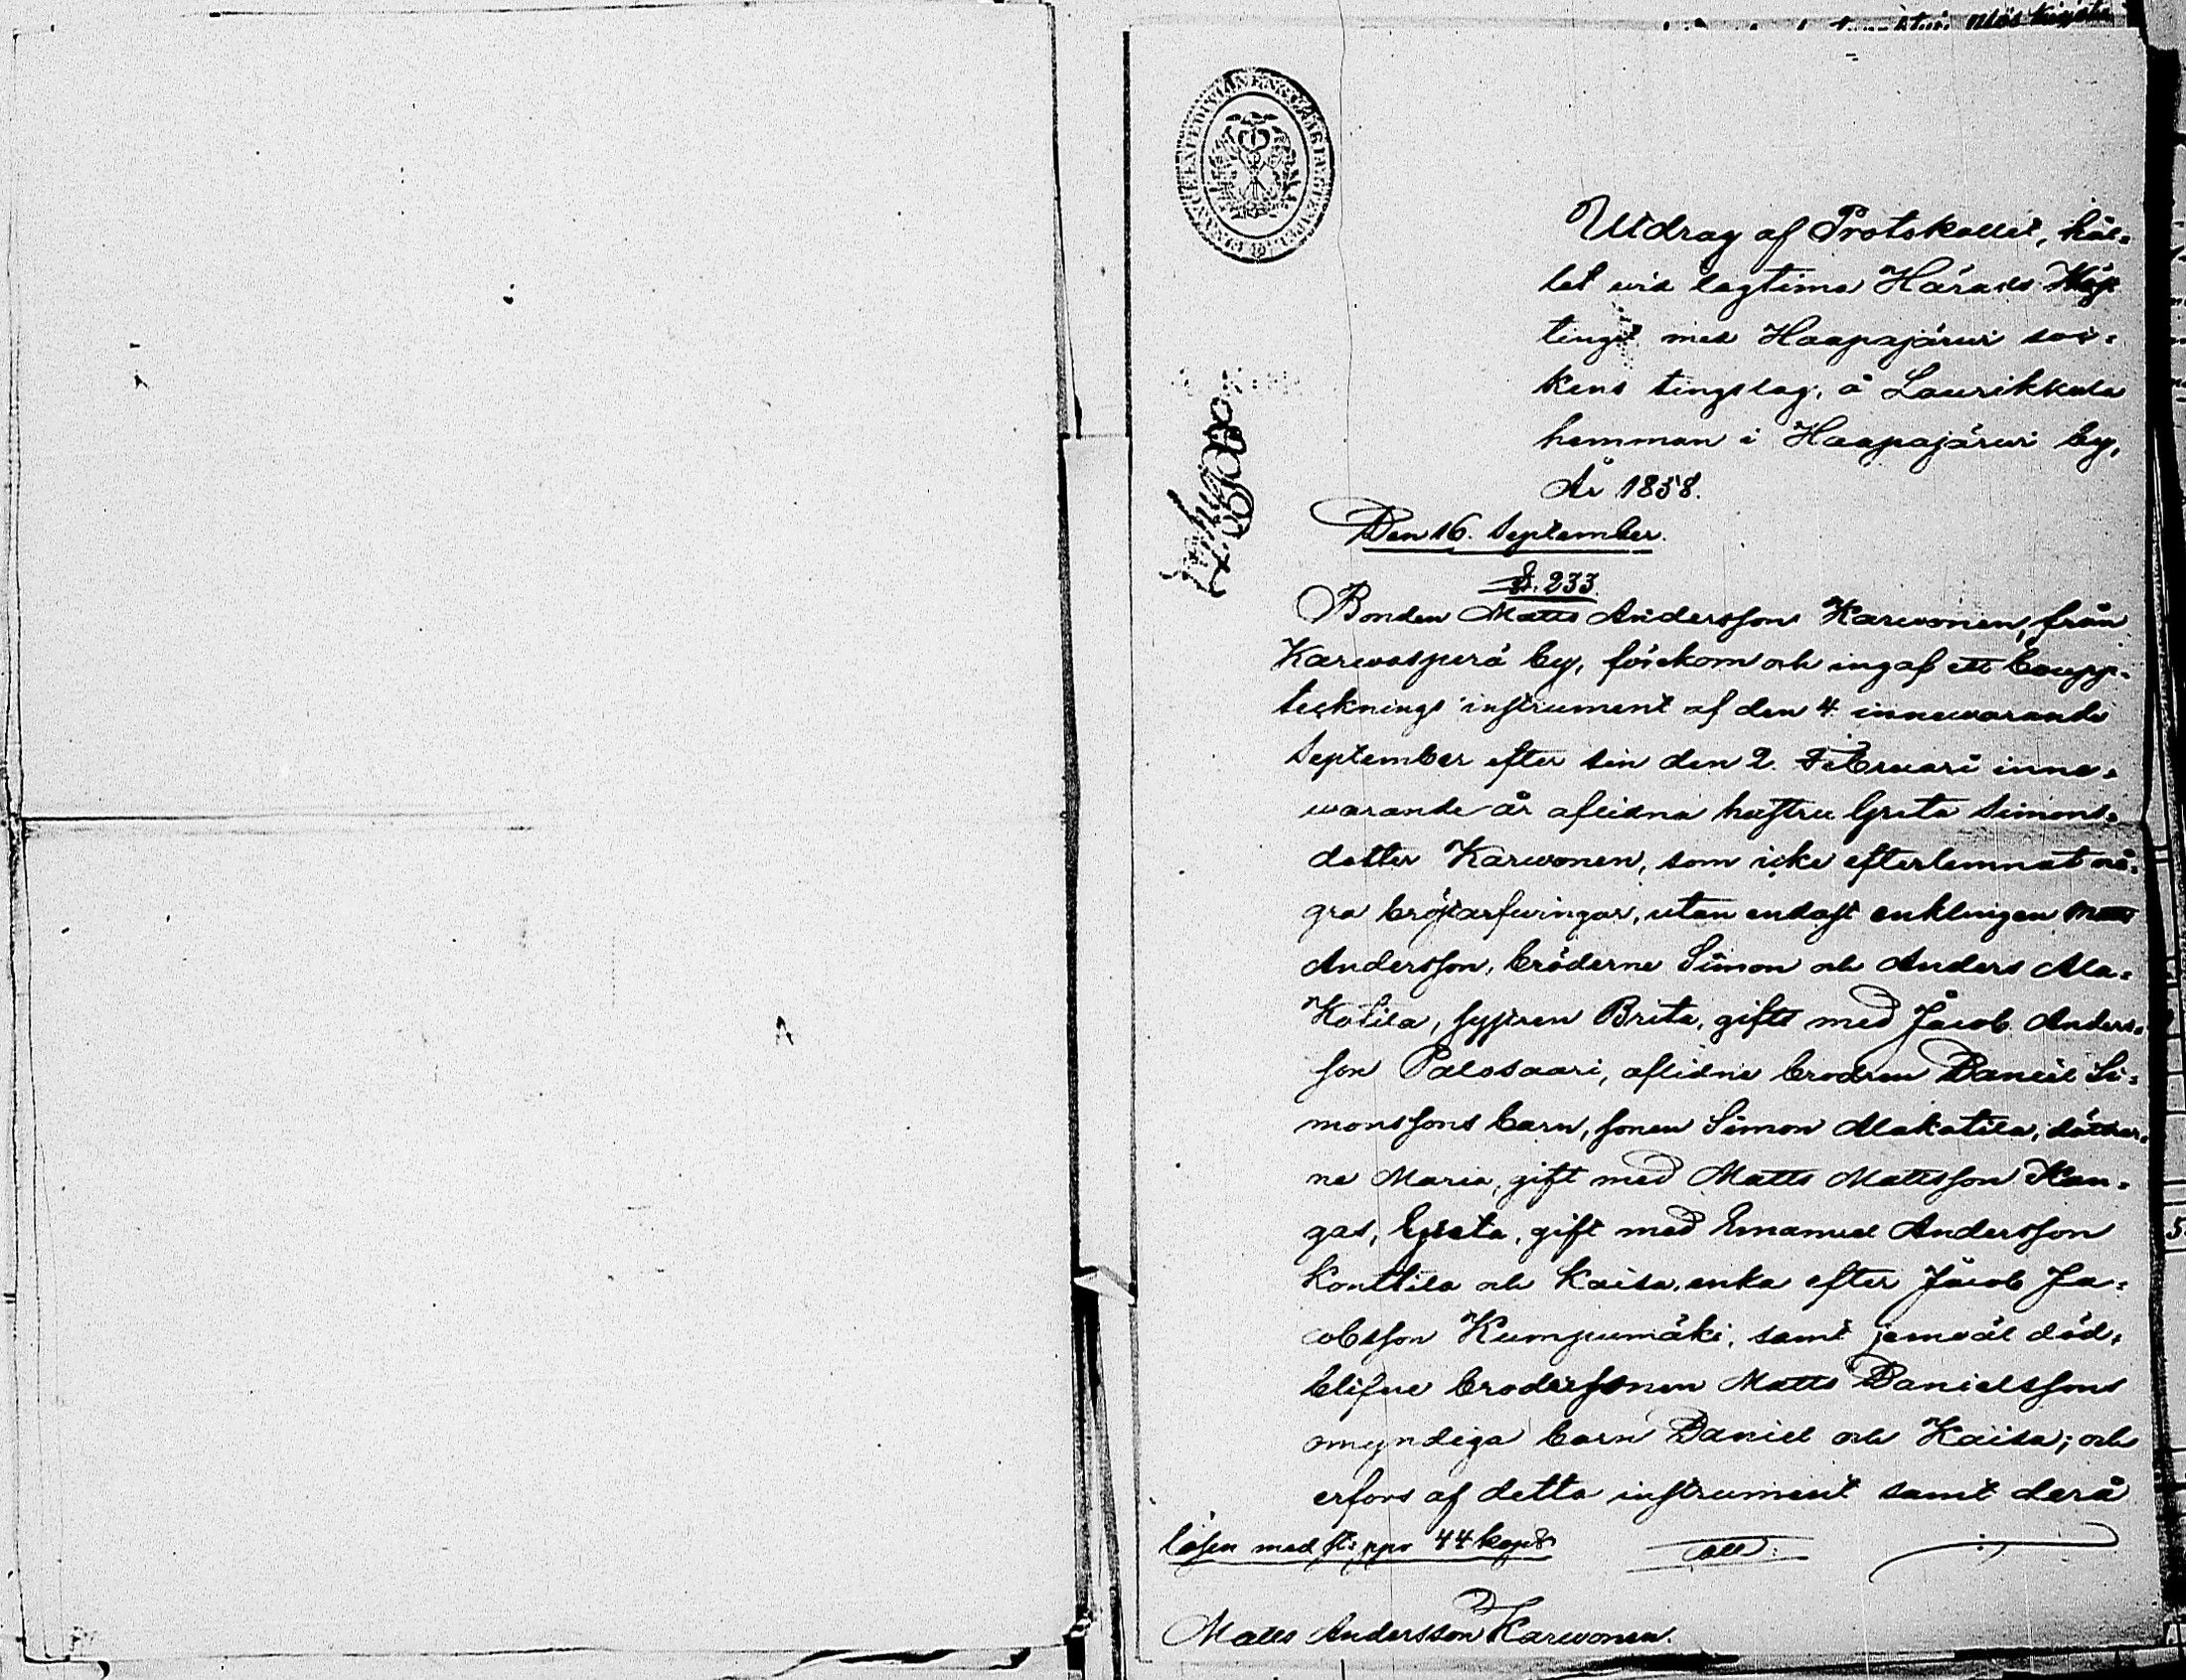 Utdrag af Protokollet, hål-
let vid lagtima Härads Höst
tinget med Haapajärwi soc-
kens tingslag, å Laurikkala
hemman i Haapajärwi by,
År 1858.
Den 16. September.
§. 233.
Bonden Matts Andersson Karwonen, från
Karwasperä by, förekom och ingaf ett boupp-
tecknings instrument af den 4 innewarande
September efter sin den 2. Februari inne-
warande år aflidna hustru Greta Simons-
dotter Karwonen, som icke efterlemnat nå-
gra bröstarfwingar, utan endast enklingen Matts
Andersson, bröderne Simon och Anders Ala-
Kotila, systren Brita, gift med Jacob Anders-
son Palosaari, aflidne brodren Daniel Si-
monssons barn, sonen Simon Alakotila, döttrar-
ne Maria, gift med Matts Mattsson Kan-
gas, Greta, gift med Emanuel Andersson
Konttila och Kaisa, enka efter Jacob Ja-
cobsson Kumpumäki, samt jemwäl död-
blifne brodersonen Matts Danielssons
omyndiga barn Daniel och Kaisa; och
erfors af detta instrument samt derå
lösen med st: ppr 44 kop S
Matts Andersson Karwonen.